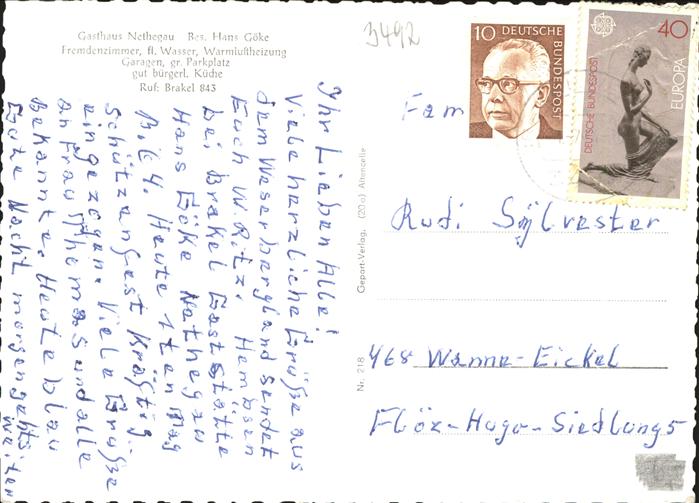 Gasthaus Nethegau Bes. Hans Göke
Fremdenzimmer, fl. Wasser, Warmluftheizung
Garagen, gr. Parkplatz
gut bürgerl. Küche
Ruf: Brakel 843
3492
10 DEUTSCHE BUNDESPOST
40
DEUTSCHE BUNDESPOST
EUROPA
Ihr Lieben Alle!
Viele herzliche Grüße aus
dem Weserbergland sendet
Euch W.R.tz. Hembsen
bei Brakel Gaststätte
Hans Göke Nathegau
Bild 4. Heute 1ten Mag
Schützenfest Kräftig
eingezogen. Viele Grüße
an Frau Themas und alle
Bekannte. Heute blau
Gute Nacht morgen gehts
weiter
Geport-Verlag, (20a) Altencelle
Nr. 218
Fam
Rudi Sylvester
468 Wanne-Eickel
Flöz-Hugo-Siedlung 5